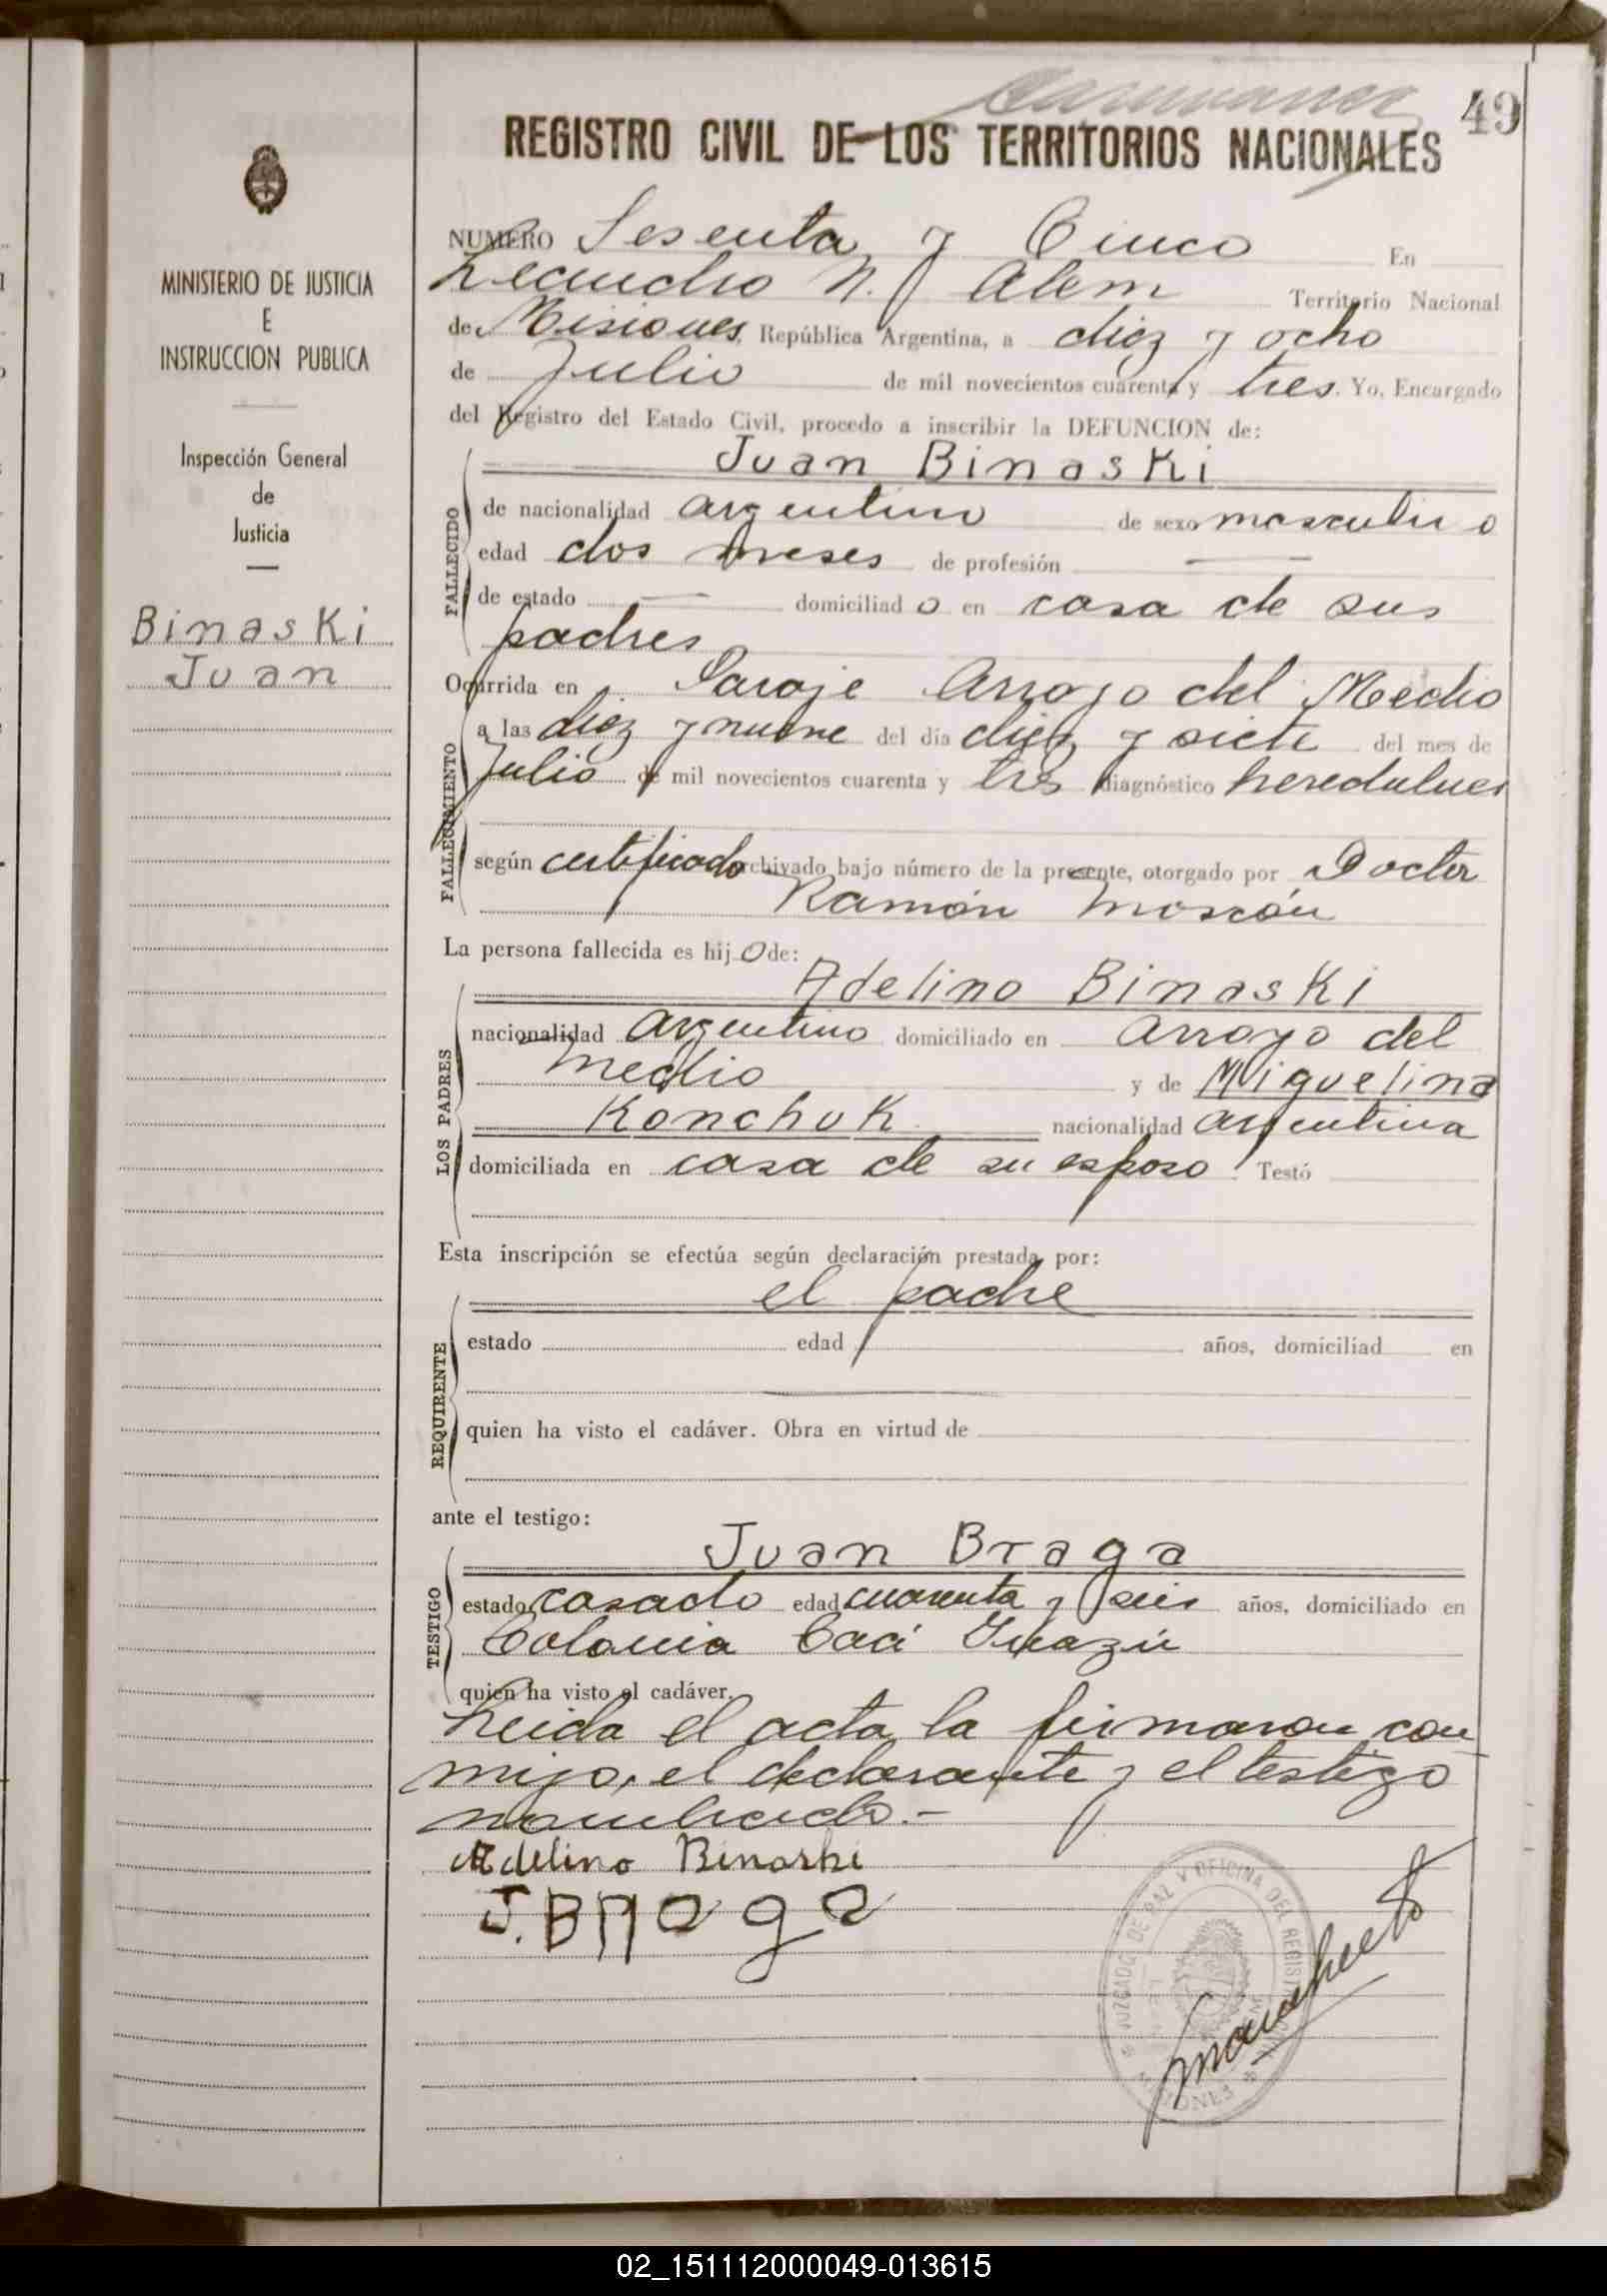 49
REGISTRO CIVIL DE LOS TERRITORIOS NACIONALES
MINISTERIO DE JUSTICIA
E
INSTRUCCION PUBLICA
Inspección General
de
Justicia
Binaski
Juan
NUMERO Sesenta y Cinco En
Leandro N. Alem Territorio Nacional
de Misiones, República Argentina, a diez y ocho
de Julio de mil novecientos cuarenta y tres. Yo, Encargado
del Registro del Estado Civil, procedo a inscribir la DEFUNCION de:
Juan Binaski
FALLECIDO
de nacionalidad argentino de sexo masculino
edad dos meses de profesión
de estado domiciliado en casa de sus
padres
Ocurrida en Paraje Arroyo del Medio
FALLECIMIENTO
a las diez y nueve del día diez y siete del mes de
Julio de mil novecientos cuarenta y tres diagnóstico
según certificado archivado bajo número de la presente, otorgado por Doctor
Ramón
La persona fallecida es hijo de:
Adelino Binaski
LOS PADRES
nacionalidad argentino domiciliado en Arroyo del
Medio y de Miguelina
Konchuk nacionalidad argentina
domiciliada en casa de su esposo Testó
Esta inscripción se efectúa según declaración prestada por:
el padre
REQUIRENTE
estado edad años, domiciliad en
quien ha visto el cadáver. Obra en virtud de
ante el testigo:
Juan Braga
TESTIGO
estado casado edad cuarenta y seis años, domiciliado en
Colonia Caá Guazú
quien ha visto el cadáver.
Leida el acta, la firmaron con
migo, el declarante y el testigo
nombrado.-
Adelino Binaski
J. Braga
JUZGADO DE PAZ Y OFICINA DEL REGISTRO
MISIONES
02_151112000049-013615